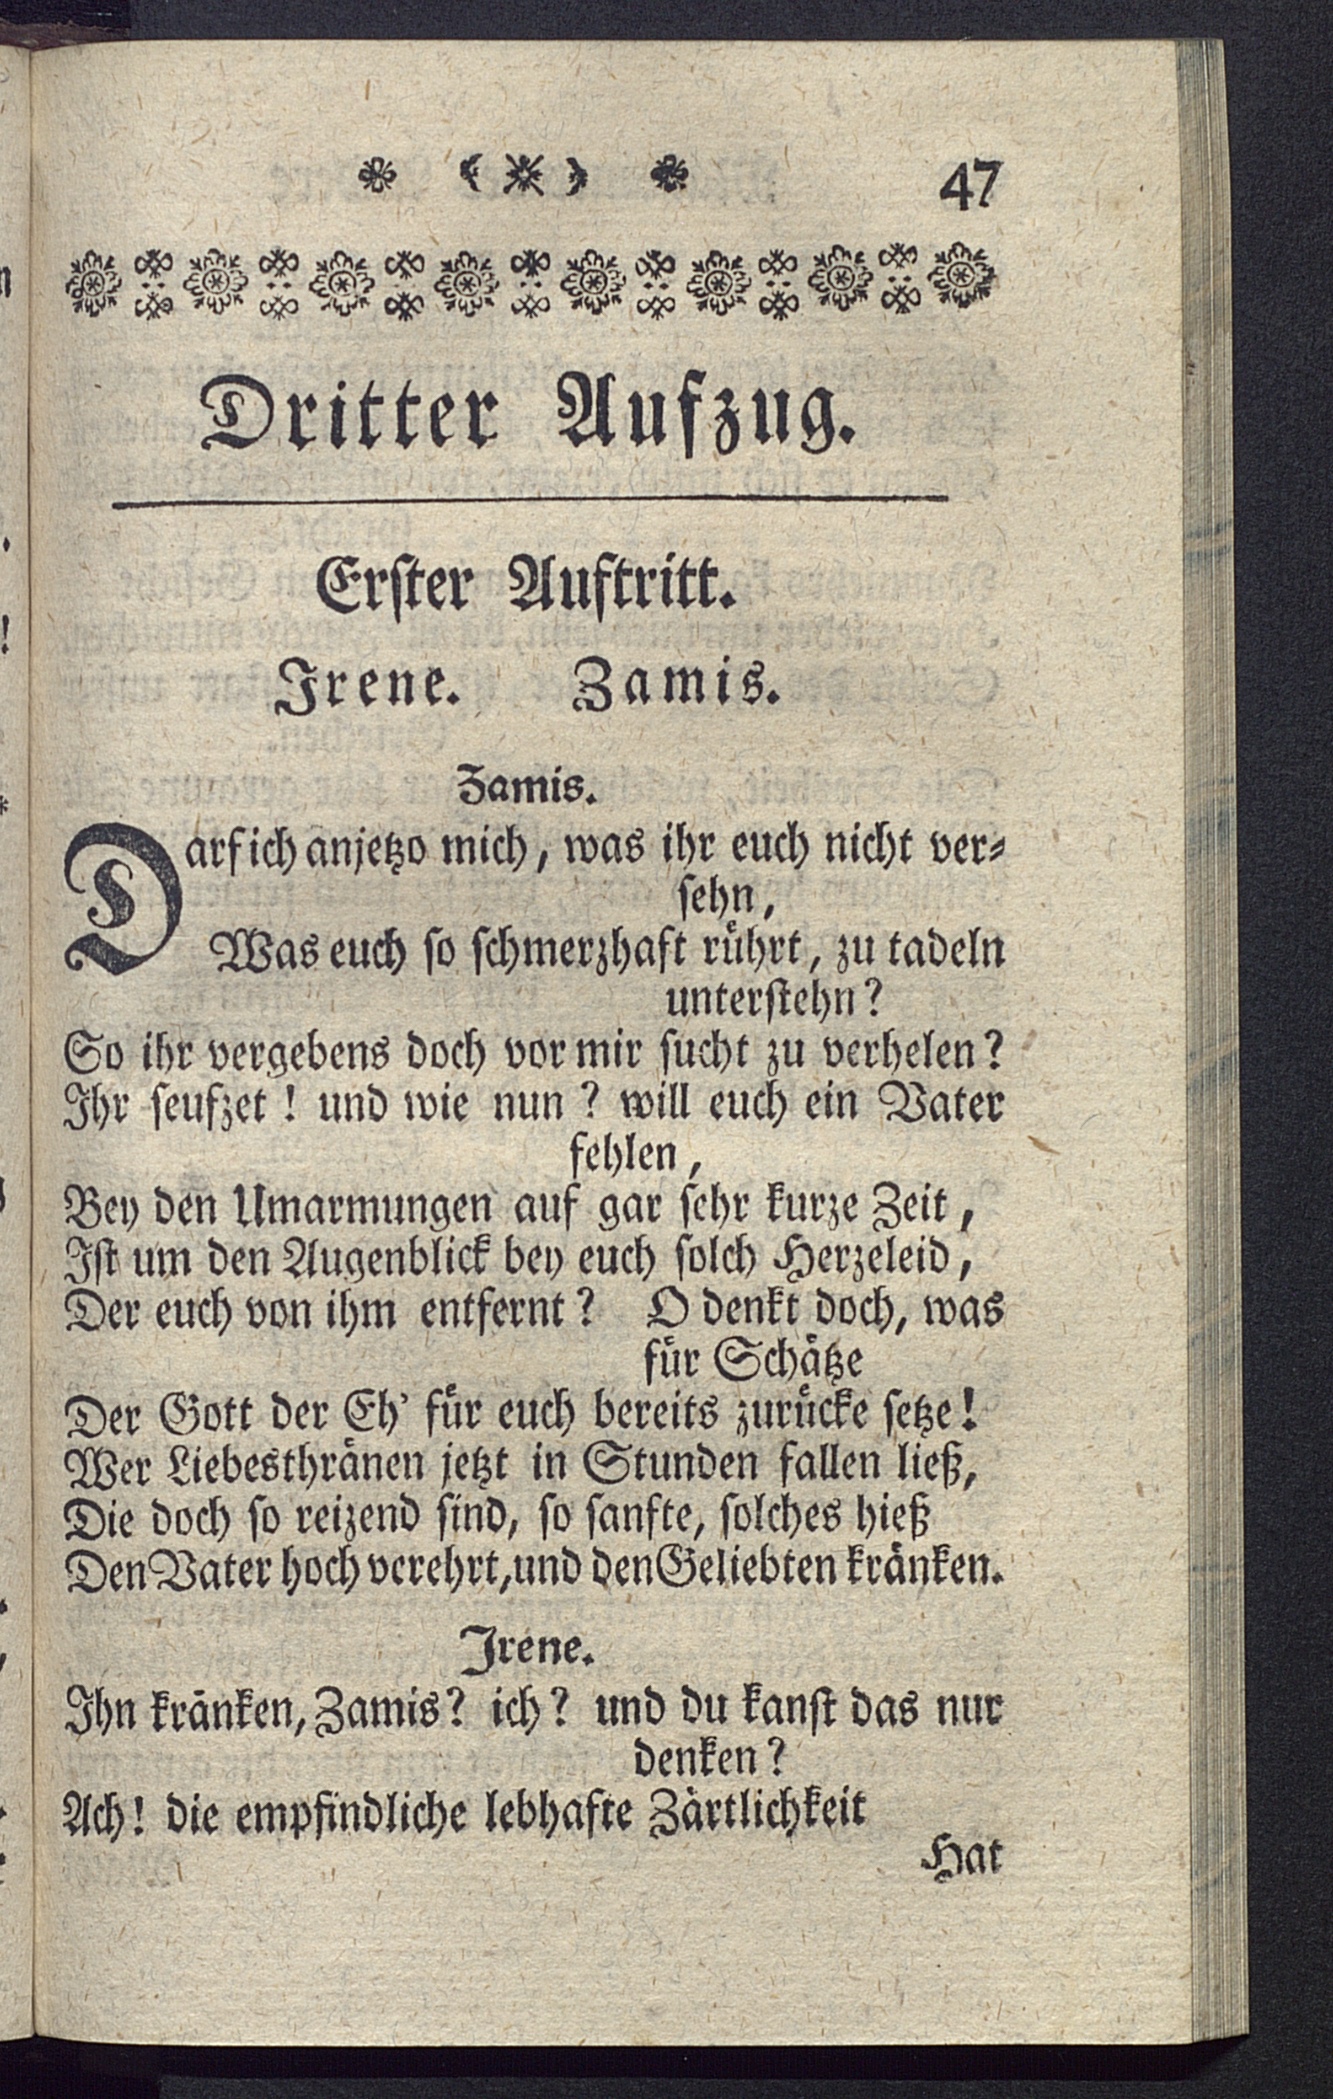 47
Dritter Aufzug.
Erster Auftritt.
Irene. Zamis.
Zamis.
Darf ich anjetzo mich, was ihr euch nicht ver-
sehn,
Was euch so schmerzhaft rührt, zu tadeln
unterstehn?
So ihr vergebens doch vor mir sucht zu verhelen?
Ihr seufzet! und wie nun? will euch ein Vater
fehlen,
Bey den Umarmungen auf gar sehr kurze Zeit,
Ist um den Augenblick bey euch solch Herzeleid,
Der euch von ihm entfernt? O denkt doch, was
für Schätze
Der Gott der Eh' für euch bereits zurücke setze!
Wer Liebesthränen jetzt in Stunden fallen ließ,
Die doch so reizend sind, so sanfte, solches hieß
Den Vater hoch verehrt, und den Geliebten kränken.
Irene.
Ihn kränken, Zamis? ich? und du kanst das nur
denken?
Ach! die empfindliche lebhafte Zärtlichkeit
Hat